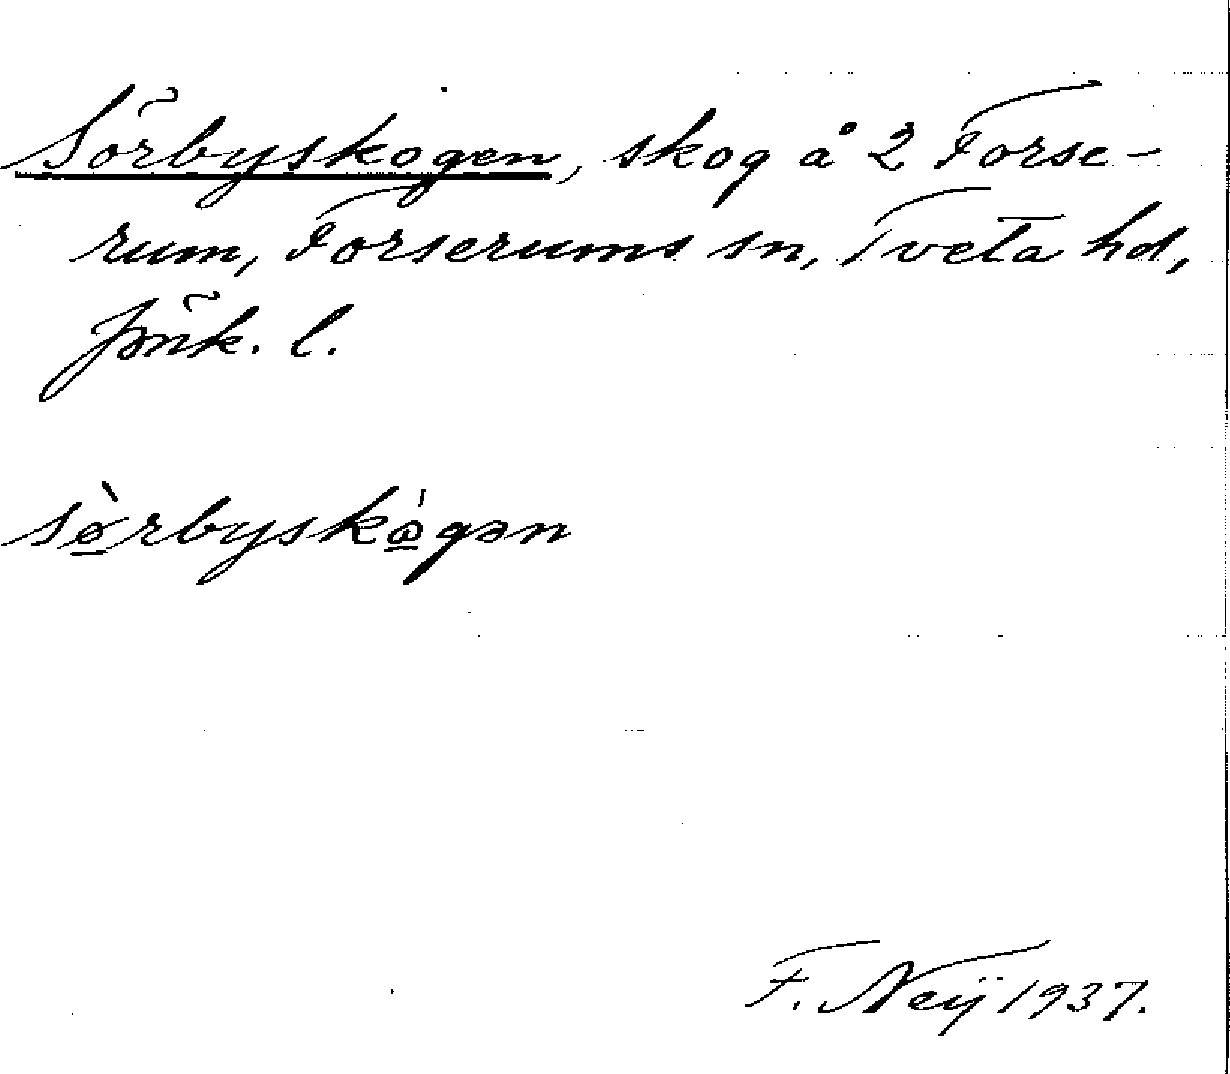 Sörbyskogen, skog å 2 Forse-
rum, Forserums sn, Tveta hd,
Jönk. l.
sø̱̀rbyskò̱gən
F. Neij 1937.